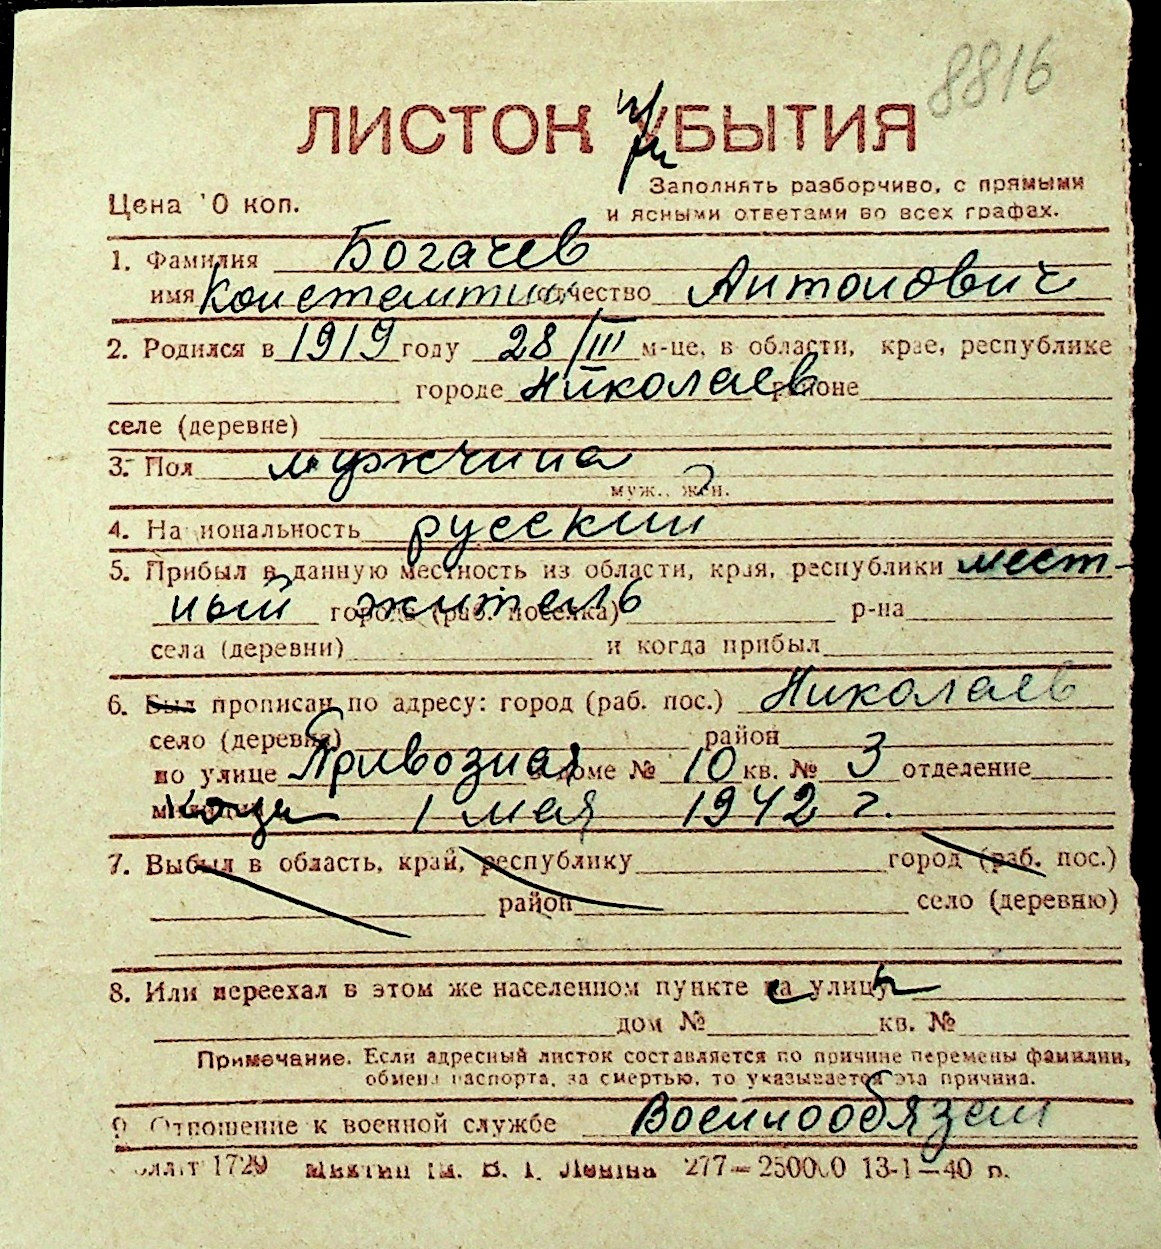 8816
ЛИСТОК при УБЫТИЯ
Цена 10 коп.
Заполнять разборчиво, с прямыми
и ясными ответами во всех графах.
1. Фамилия Богачев
имя Константин отчество Антонович
2. Родился в 1919 году 28/III м-це, в области, крае, республике
городе Николаев районе
селе (деревне)
3. Пол мужчина
муж., жен.
4. Национальность русский
5. Прибыл в данную местность из области, края, республики мест-
ный житель города (раб. поселка) р-на
села (деревни) и когда прибыл
6. Был прописан по адресу: город (раб. пос.) Николаев
село (деревня) район
по улице Привозная в доме № 10 кв. № 3 отделение
милиции 1 мая 1942 г.
7. Выбыл в область, край, республику город (раб. пос.)
район село (деревню)
8. Или переехал в этом же населенном пункте с улицы
дом № кв. №
Примечание. Если адресный листок составляется по причине перемены фамилии,
обмена паспорта, за смертью, то указывается эта причина.
9. Отношение к военной службе Военнообязан
1729 В. И. Ленина 277—250000 13-1—40 п.